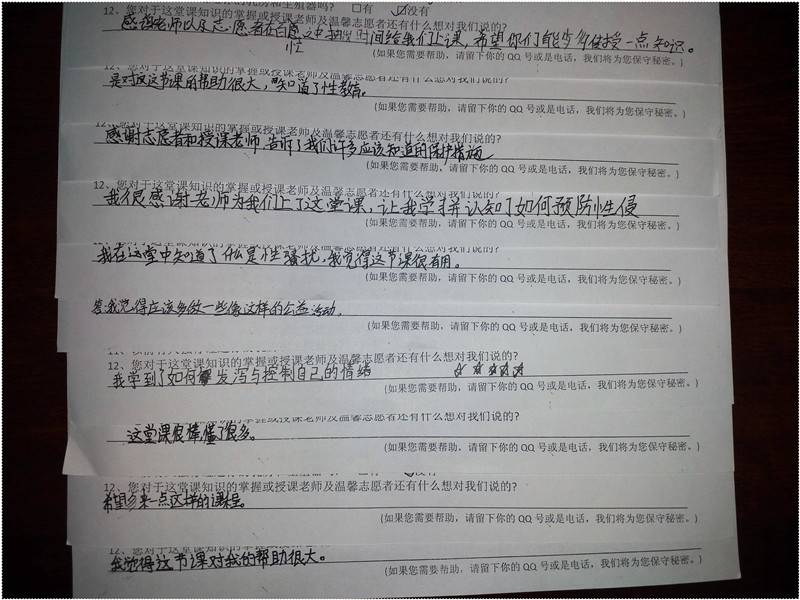 12. 您对于这堂课知识的掌握或授课老师及温馨志愿者还有什么想对我们说的?
感谢老师以及志愿者在百忙之中抽出时间给我们上课，希望你们能多多传授一点知识。
(如果您需要帮助，请留下你的 QQ 号或是电话，我们将为您保守秘密。)
12、您对于这堂课知识的掌握或授课老师及温馨志愿者还有什么想对我们说的?
是对这节课的帮助很大，知道了性教育。
(如果您需要帮助，请留下你的 QQ 号或是电话，我们将为您保守秘密。)
12、您对于这堂课知识的掌握或授课老师及温馨志愿者还有什么想对我们说的?
感谢志愿者和授课老师告诉了我们许多应该知道的保护措施
(如果您需要帮助，请留下你的 QQ 号或是电话，我们将为您保守秘密。)
12、您对于这堂课知识的掌握或授课老师及温馨志愿者还有什么想对我们说的?
我很感谢老师为我们上了这堂课，让我学习并认知了如何预防性侵
(如果您需要帮助，请留下你的 QQ 号或是电话，我们将为您保守秘密。)
我在这堂中知道了什么是性骚扰，我觉得这节课很有用。
(如果您需要帮助，请留下你的 QQ 号或是电话，我们将为您保守秘密。)
答:我觉得应该多做一些像这样的公益活动.
(如果您需要帮助，请留下你的 QQ 号或是电话，我们将为您保守秘密。)
12、您对于这堂课知识的掌握或授课老师及温馨志愿者还有什么想对我们说的?
我学到了如何发泻与控制自己的情绪
(如果您需要帮助，请留下你的 QQ 号或是电话，我们将为您保守秘密。)
的掌握或授课老师及温馨志愿者还有什么想对我们说的?
这堂课很棒懂了很多。
(如果您需要帮助，请留下你的 QQ 号或是电话，我们将为您保守秘密。)
12、您对于这堂课知识的掌握或授课老师及温馨志愿者还有什么想对我们说的?
希望多来一点这样的课程。
(如果您需要帮助，请留下你的 QQ 号或是电话，我们将为您保守秘密。)
12、您对于这堂课知识的掌握或授课老师及温馨志愿者还有什么想对我们说的?
我觉得这节课对我的帮助很大。
(如果您需要帮助，请留下你的 QQ 号或是电话，我们将为您保守秘密。)